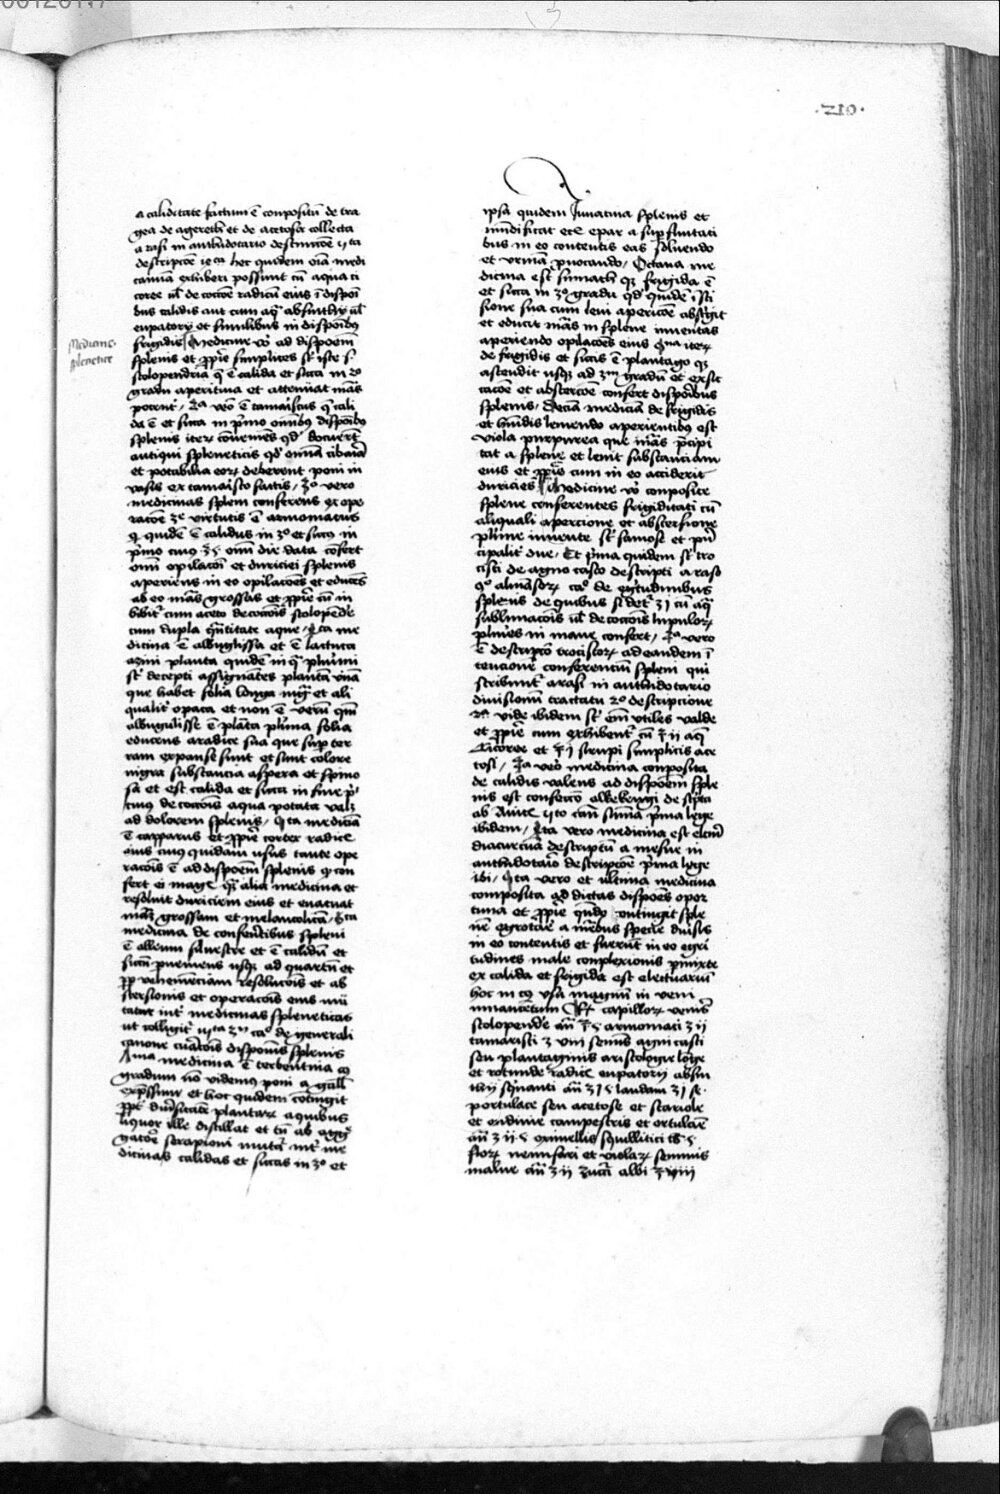 ·210·
a caliditate factum ē conpositū de tra
gea de agereth et de acetosa collecta
a rasi in anthidotario
descripcōe hec quidem oīa medi
camīa exhiberi possunt cū aqua ci
coree ul de coccōe radicū eius ī dispōi
bus calidis aut cum aq̄ absinthij ul
eupatorij et similibus in dispōibus
frigidis Medicine vō ad dispōem
Medicine
splenetice
splenis et ꝓpīe simplices sūt iste s
scolopendria q̄ ē calida et sicca in 2o
gradu aperitiua et attenuat māz
potent / 2a vēo ē tamariscus q̄ cali
da ē et sicca in pīmo omībus dispōibus
splenis itē conueniēs qd docuerūt
antiqui spleneticis qd omnia cibaria
et potabilia eorꝝ deberent poni in
vasis ex tamarisco factis / 3a vero
medicinas splem conferens ex ope
racōe virtutis ē armoniacus
q quidē ē calidus in 3o et siccus in
pīmo cuius data cōfert
omī opilacōi et duriciei splenis
aperiens in eo opilacōes et educēs
ab eo māz grossas et ꝓpīe cū in
bibit cum aceto decoccōis scolopēdrie
cum dupla q̄ntitate aque / 4ta me
dicina ē albuglissa et ē lactuca
asini planta quidē in q̄ plurimi
sūt decepti assignātes plantā vnā
que habet folia longa nigra et ali
qualit opaca et non ē verū qm
albugulisse ē plāta plīma folia
educens a radice sua que sup ter
ram expanse sunt et sunt colore
nigra substancia aspera et spino
sa et est calida et sicca in fine
cuius decoccōis aqua potata valz
ad dolorem splenis / 5ta mediciā
ē capparus et ꝓpīe cortex radicis
eius cuius quidam usus tante ope
racōis ē ad dispōem splenis q con
fert ei mage q̄ alia medicina et
resoluit duriciem eius et euacuat
māz grossam et melancolicā / 6ta
medicina de conferētibus spleni
ē alleum siluestre et ē calidū et
siccū pueniens usq ad quartū et
ꝓp vehemenciam resolucōis et ab
stersionis et operacōis eius mu
tatur int medicinas spleneticas
ut colligit de generali
canone curacōis dispōnis splenis
7ma medicina ē terbentina q
gradum nō videmus poni a gall
expressum et hoc quidem cōtingit
ꝓpt diuisitatē plantarꝝ a quibus
liquor ille distillat et tū ab aggre
gatore serapioni mutat int me
dicinas calidas et siccas in 3o et
ipsa quidem Iuuatiua splenis et
mūdificat etē epar a supfluitati
bus in eo contentis eas soluendo
et vrinam prouocando / Octaua me
dicina est sumach qz frigida ē
et sicca in 3o gradu qd quidē
sione sua cum leui apericōe abstigit
et educit māz in splene inuentas
aperiendo opilacōes eius 9na iterꝝ
de frigidis et siccis ē plantago qz
ascendit usq ad 3m gradū et exsic
cacōe et abstercōe confert dispōibus
splenis / Decia mediciā de frigidis
et hmidis leniendo aperientibus est
viola purpurea que māz pcipi
tat a splene et lenit substanciam
eius et ꝓpīe cum in eo acciderit
duricies Medicine vō composite
splene conferentes frigiditati cū
aliquali apercione et abstersione
plurime inuente sūt famose et prin
cipalit due / Et pīma quidem sūt tro
cisci de agno casto descripti a raso
9o almāsorꝝ cao de egitudinibus
splenis de quibus si detur ʒ j cū aq̄
sublimacōis ul decoccōis lupulorꝝ
pluries in mane confert / 2a vero
ē descripcō trociscorꝝ ad eandem ī
tencionē conferencium spleni qui
scribunt a rasi in anthidotario
diuisionū tractatu 2o descripcione
2a vide ibidem sūt em vtiles valde
et ꝓpīe cum exhibent cū ℥ ij aq̄
cicoree et ℥ j sirupi simplicis ace
tosi / 3a vēo medicina conposita
de calidis valens ad dispōem sple
nis est confeccō alkekengi de scīpta
ab Auic 5to can summa pīma lege
ibidem / 4ta vero medicina est elctm
diacurcuma descriptū a mesue in
anthidotaīo descripcōe pīma lege
ibi / 5ta vero et ultima medicina
composita ad dictas dispōes opor
tuna et ꝓpīe qn̄do contingit sple
nē egrotare a mībus specie diuisis
in eo contentis et fuerunt in eo egri
tudines male complexionis pmixte
ex calida et frigida est electuariū
hoc in cuius vsu magnū in veni
iuuamentum Rx capillorꝝ venis
scolopendrie an armoniaci ʒ ij
tamarisci ʒ viij seminis agni casti
seu plantaginis aristologie lōge
et rotunde radicis eupatorij absin
thij squinanti an laudani
portulace seu acetose et scariole
et endiuie campestris et ortulane
an oximellis squillitici
florꝝ nenufari et violarꝝ seminis
malue an ʒ ij zucari albi ℥ viij